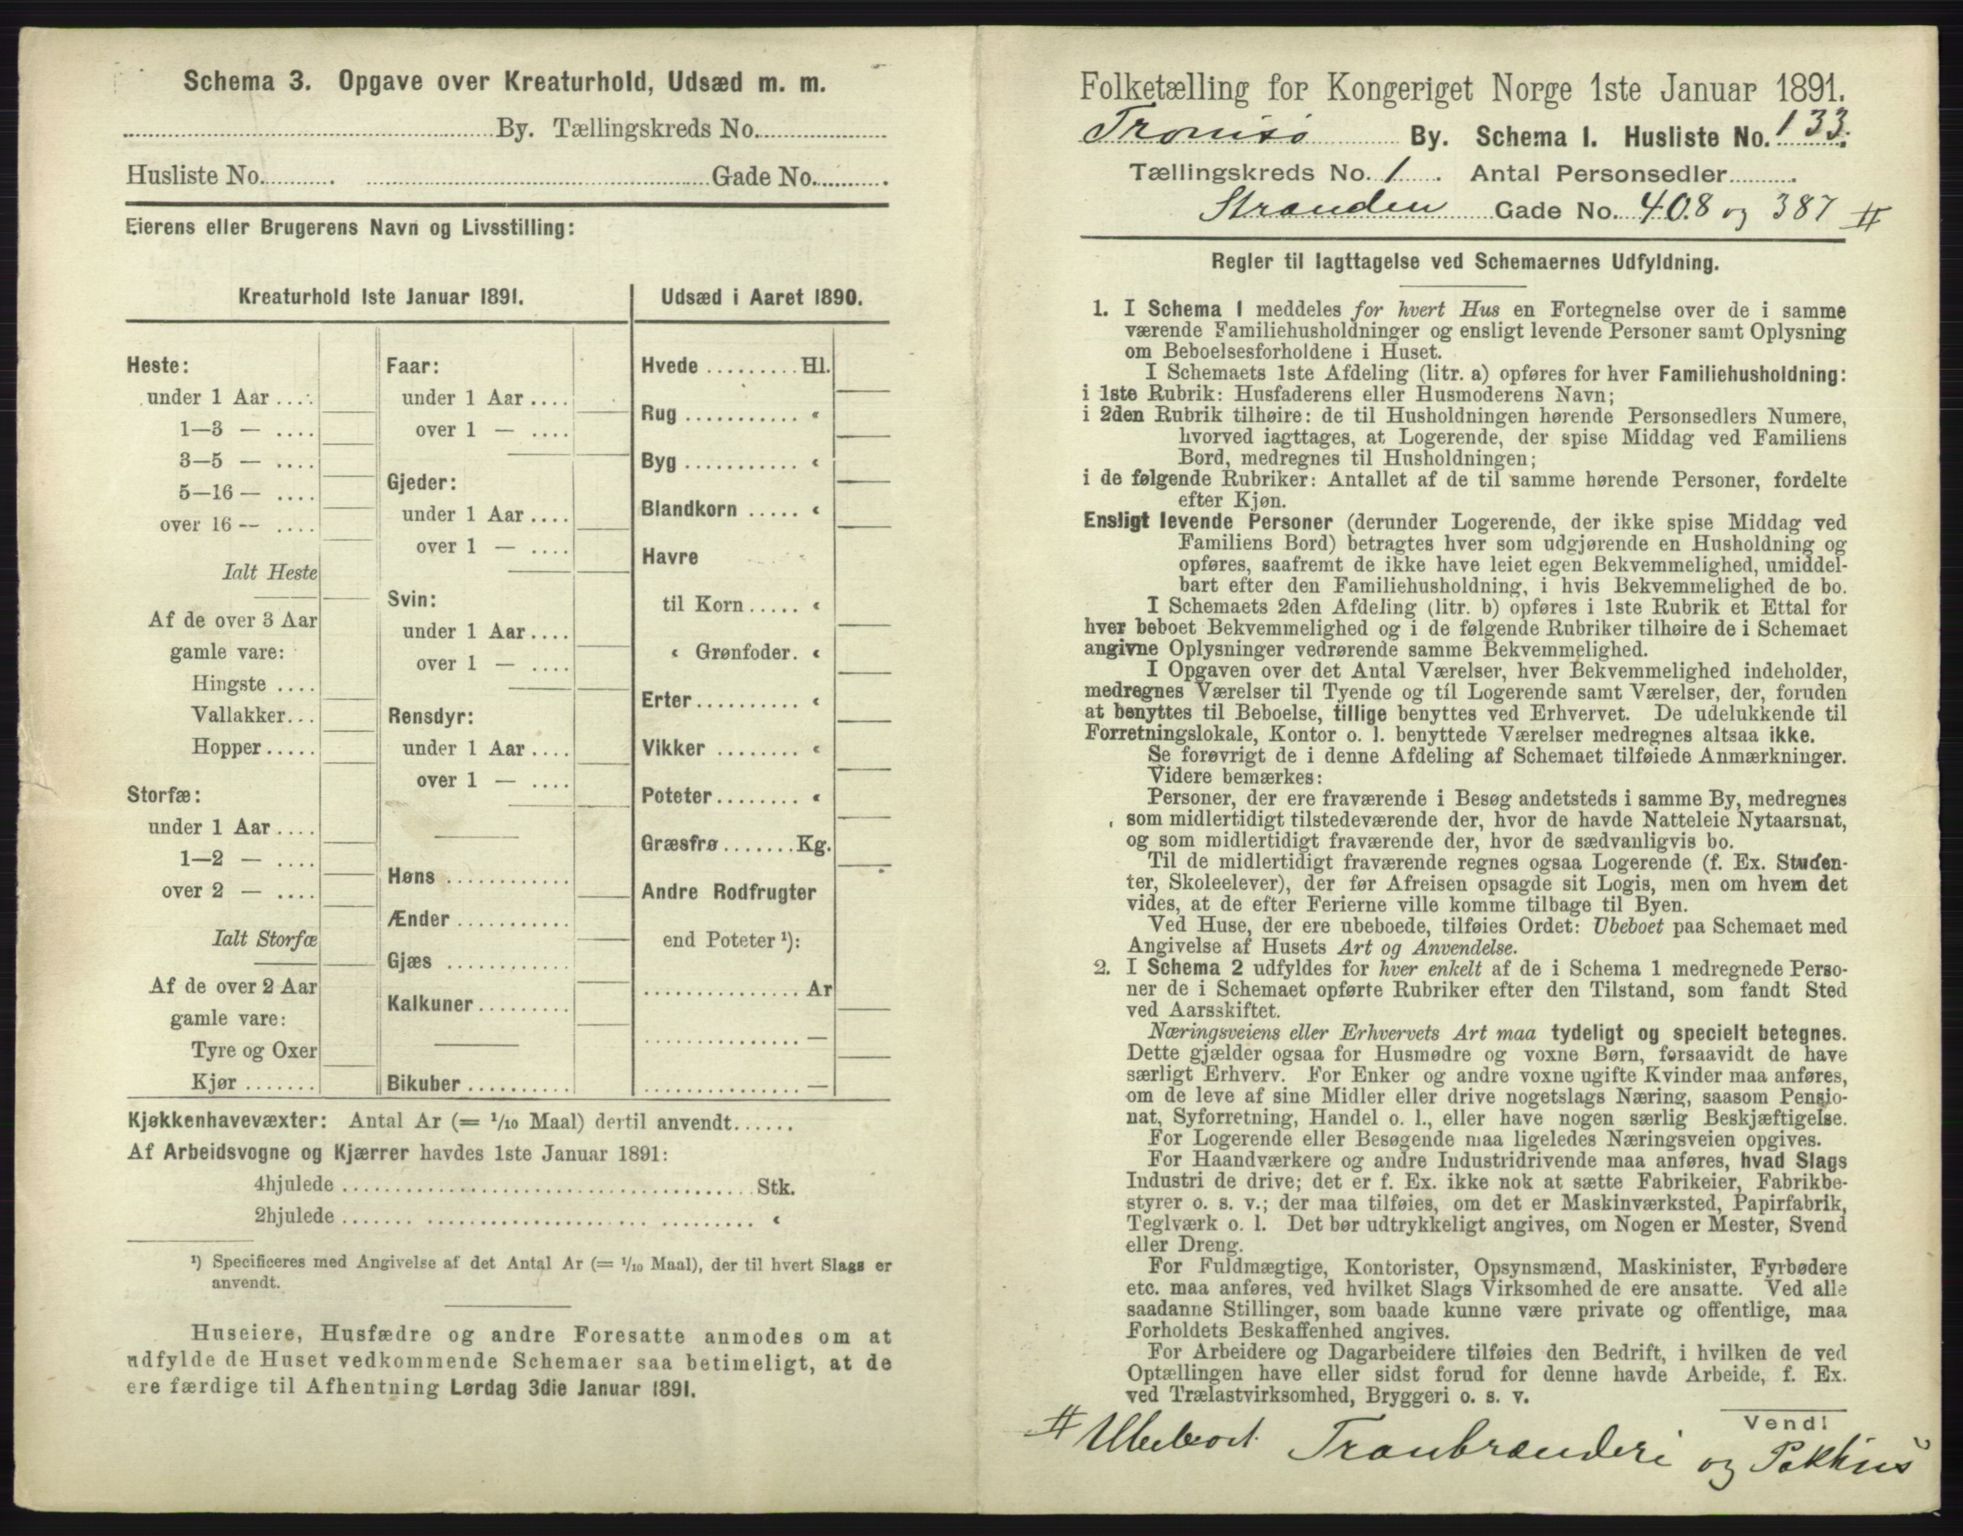 Schema 3. Opgave over Kreaturhold, Udsæd m. m.
By. Tællingskreds No.
Husliste No. Gade No.
Eierens eller Brugerens Navn og Livsstilling:
Kreaturhold 1ste Januar 1891.
Heste:
under 1 Aar ....
1—3 — ....
3—5 — ....
5—16 — ....
over 16 — ....
Ialt Heste
Af de over 3 Aar
gamle vare:
Hingste ....
Vallakker...
Hopper.....
Storfæ:
under 1 Aar ....
1—2 — ....
over 2 — ....
Ialt Storfæ
Af de over 2 Aar
gamle vare:
Tyre og Oxer
Kjør .......
Faar:
under 1 Aar ....
over 1 — ....
Gjeder:
under 1 Aar ....
over 1 — ....
Svin:
under 1 Aar ....
over 1 — ....
Rensdyr:
under 1 Aar ....
over 1 — ....
Høns ............
Ænder ...........
Gjæs ............
Kalkuner.........
Bikuber ..........
Udsæd i Aaret 1890.
Hvede ......... Hl.
Rug ........... «
Byg ........... «
Blandkorn ..... «
Havre
til Korn ..... «
« Grønfoder. «
Erter .......... «
Vikker ........ «
Poteter........ «
Græsfrø ....... Kg.
Andre Rodfrugter
end Poteter ¹):
............... Ar
............... —
............... —
Kjøkkenhavevæxter: Antal Ar (= 1/10 Maal) dertil anvendt......
Af Arbeidsvogne og Kjærrer havdes 1ste Januar 1891:
4hjulede ........................................ Stk.
2hjulede ........................................ «
¹) Specificeres med Angivelse af det Antal Ar (= 1/10 Maal), der til hvert Slags er
anvendt.
Huseiere, Husfædre og andre Foresatte anmodes om at
udfylde de Huset vedkommende Schemaer saa betimeligt, at de
ere færdige til Afhentning Lørdag 3die Januar 1891.
Folketælling for Kongeriget Norge 1ste Januar 1891.
Tromsø By. Schema I. Husliste No. 133.
Tællingskreds No. 1. Antal Personsedler
Stranden Gade No. 408 og 387 #
Regler til Iagttagelse ved Schemaernes Udfyldning.
1. I Schema 1 meddeles for hvert Hus en Fortegnelse over de i samme
værende Familiehusholdninger og ensligt levende Personer samt Oplysning
om Beboelsesforholdene i Huset.
I Schemaets 1ste Afdeling (litr. a) opføres for hver Familiehusholdning:
i 1ste Rubrik: Husfaderens eller Husmoderens Navn;
i 2den Rubrik tilhøire: de til Husholdningen hørende Personsedlers Numere,
hvorved iagttages, at Logerende, der spise Middag ved Familiens
Bord, medregnes til Husholdningen;
i de følgende Rubriker: Antallet af de til samme hørende Personer, fordelte
efter Kjøn.
Ensligt levende Personer (derunder Logerende, der ikke spise Middag ved
Familiens Bord) betragtes hver som udgjørende en Husholdning og
opføres, saafremt de ikke have leiet egen Bekvemmelighed, umiddel-
bart efter den Familiehusholdning, i hvis Bekvemmelighed de bo.
I Schemaets 2den Afdeling (litr. b) opføres i 1ste Rubrik et Ettal for
hver beboet Bekvemmelighed og i de følgende Rubriker tilhøire de i Schemaet
angivne Oplysninger vedrørende samme Bekvemmelighed.
I Opgaven over det Antal Værelser, hver Bekvemmelighed indeholder,
medregnes Værelser til Tyende og til Logerende samt Værelser, der, foruden
at benyttes til Beboelse, tillige benyttes ved Erhvervet. De udelukkende til
Forretningslokale, Kontor o. l. benyttede Værelser medregnes altsaa ikke.
Se forøvrigt de i denne Afdeling af Schemaet tilføiede Anmærkninger.
Videre bemærkes:
Personer, der ere fraværende i Besøg andetsteds i samme By, medregnes
som midlertidigt tilstedeværende der, hvor de havde Natteleie Nytaarsnat,
og som midlertidigt fraværende der, hvor de sædvanligvis bo.
Til de midlertidigt fraværende regnes ogsaa Logerende (f. Ex. Studen-
ter, Skoleelever), der før Afreisen opsagde sit Logis, men om hvem det
vides, at de efter Ferierne ville komme tilbage til Byen.
Ved Huse, der ere ubeboede, tilføies Ordet: Ubeboet paa Schemaet med
Angivelse af Husets Art og Anvendelse.
2. I Schema 2 udfyldes for hver enkelt af de i Schema 1 medregnede Perso-
ner de i Schemaet opførte Rubriker efter den Tilstand, som fandt Sted
ved Aarsskiftet.
Næringsveiens eller Erhvervets Art maa tydeligt og specielt betegnes.
Dette gjælder ogsaa for Husmødre og voxne Børn, forsaavidt de have
særligt Erhverv. For Enker og andre voxne ugifte Kvinder maa anføres,
om de leve af sine Midler eller drive nogetslags Næring, saasom Pensio-
nat, Syforretning, Handel o. l., eller have nogen særlig Beskjæftigelse.
For Logerende eller Besøgende maa ligeledes Næringsveien opgives.
For Haandværkere og andre Industridrivende maa anføres, hvad Slags
Industri de drive; det er f. Ex. ikke nok at sætte Fabrikeier, Fabrikbe-
styrer o. s. v.; der maa tilføies, om det er Maskinværksted, Papirfabrik,
Teglværk o. l. Det bør udtrykkeligt angives, om Nogen er Mester, Svend
eller Dreng.
For Fuldmægtige, Kontorister, Opsynsmænd, Maskinister, Fyrbødere
etc. maa anføres, ved hvilket Slags Virksomhed de ere ansatte. Ved alle
saadanne Stillinger, som baade kunne være private og offentlige, maa
Forholdets Beskaffenhed angives.
For Arbeidere og Dagarbeidere tilføies den Bedrift, i hvilken de ved
Optællingen have eller sidst forud for denne havde Arbeide, f. Ex.
ved Trælastvirksomhed, Bryggeri o. s. v.
Vend!
# Ubeboet Tranbrænderi og Pakhus